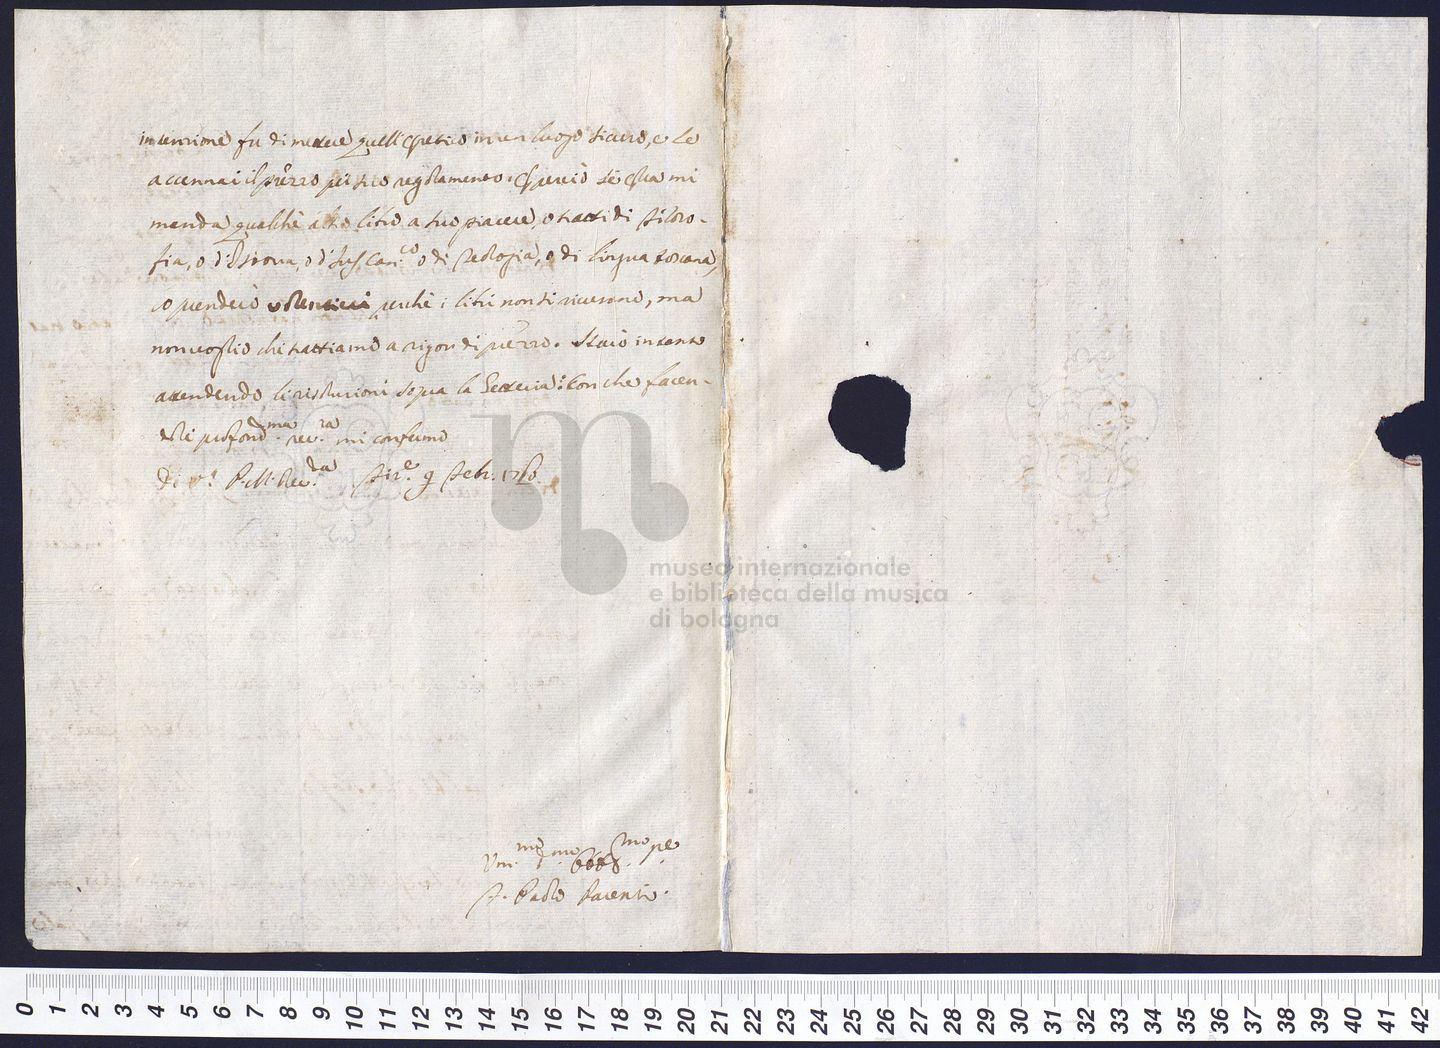 intenzione fu di mettere quell' in un luogo sicuro, e le
accennai il prezzo per suo regolamento. Perciò se Ella mi
manda qualche altro libro a suo piacere, o tratti di Filoso-
fia, o d'Istoria, o d'Jus Can.co o di Teologia, o di lingua toscana,
io prenderò volentieri perchè i libri non si ricusano, ma
non voglio che trattiamo a rigor di prezzo. Starò intanto
attendendo le risoluzioni sopra la: Con che facen-
dole profond.ma rev.ra mi confermo
Di V.P.M.Rev.da Fir.e 9 Febr.
museo internazionale
e biblioteca della musica
di bologna
Um.mo
F. Paolo Parenti
0 1 2 3 4 5 6 7 8 9 10 11 12 13 14 15 16 17 18 19 20 21 22 23 24 25 26 27 28 29 30 31 32 33 34 35 36 37 38 39 40 41 42